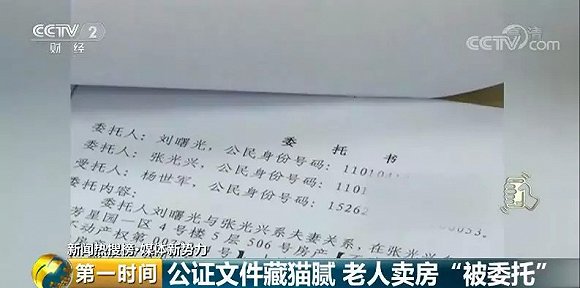 CCTV 2
财经
CCTV.com
委托书
委托人：刘曙光，公民身份号码：11010
委托人：张光兴，公民身份号码：1101
受托人：杨世军，公民身份号码：15262
委托内容：
委托人刘曙光与张光兴系夫妻关系，在
芳星园一区4号楼5层506号房产
不动产权第
新闻热搜榜·媒体新势力
第一时间
公证文件藏猫腻 老人卖房“被委托”